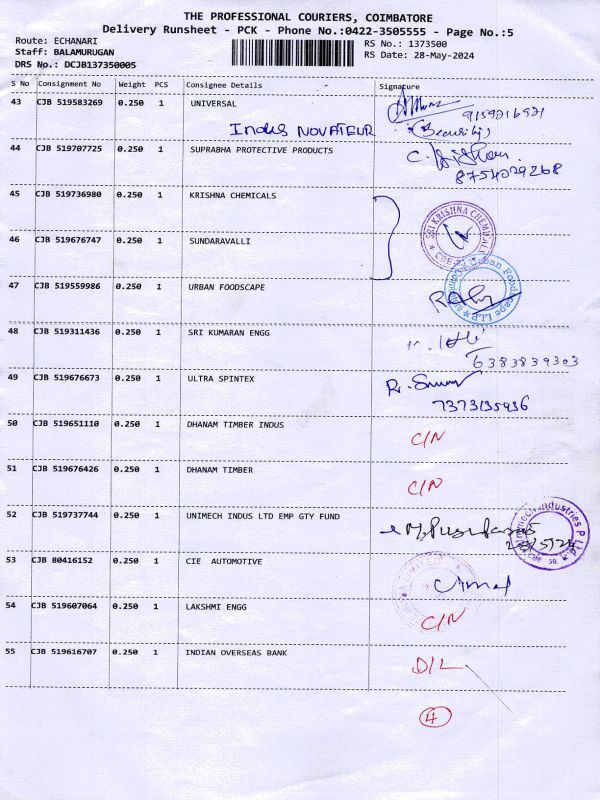 THE PROFESSIONAL COURIERS, COIMBATORE
Delivery Runsheet - PCK - Phone No.:0422-3505555 - Page No.:5
Route: ECHANARI
RS No.: 1373500
Staff: BALAMURUGAN
RS Date: 28-May-2024
DRS No.: DCJB137350005
S No Consignment No Weight PCS Consignee Details Signature
43 CJB 519583269 0.250 1 UNIVERSAL
9159216921
Indus NOVATEUR (Security)
44 CJB 519707725 0.250 1 SUPRABHA PROTECTIVE PRODUCTS
8754029268
45 CJB 519736980 0.250 1 KRISHNA CHEMICALS
SRI KRISHNA CHEMICALS
46 CJB 519676747 0.250 1 SUNDARAVALLI
47 CJB 519559986 0.250 1 URBAN FOODSCAPE
Urban Foodscape LLP
48 CJB 519311436 0.250 1 SRI KUMARAN ENGG
6383839303
49 CJB 519676673 0.250 1 ULTRA SPINTEX
7373135936
50 CJB 519651110 0.250 1 DHANAM TIMBER INDUS C/N
51 CJB 519676426 0.250 1 DHANAM TIMBER C/N
52 CJB 519737744 0.250 1 UNIMECH INDUS LTD EMP GTY FUND
53 CJB 80416152 0.250 1 CIE AUTOMOTIVE
54 CJB 519607064 0.250 1 LAKSHMI ENGG C/N
55 CJB 519616707 0.250 1 INDIAN OVERSEAS BANK D/L
4